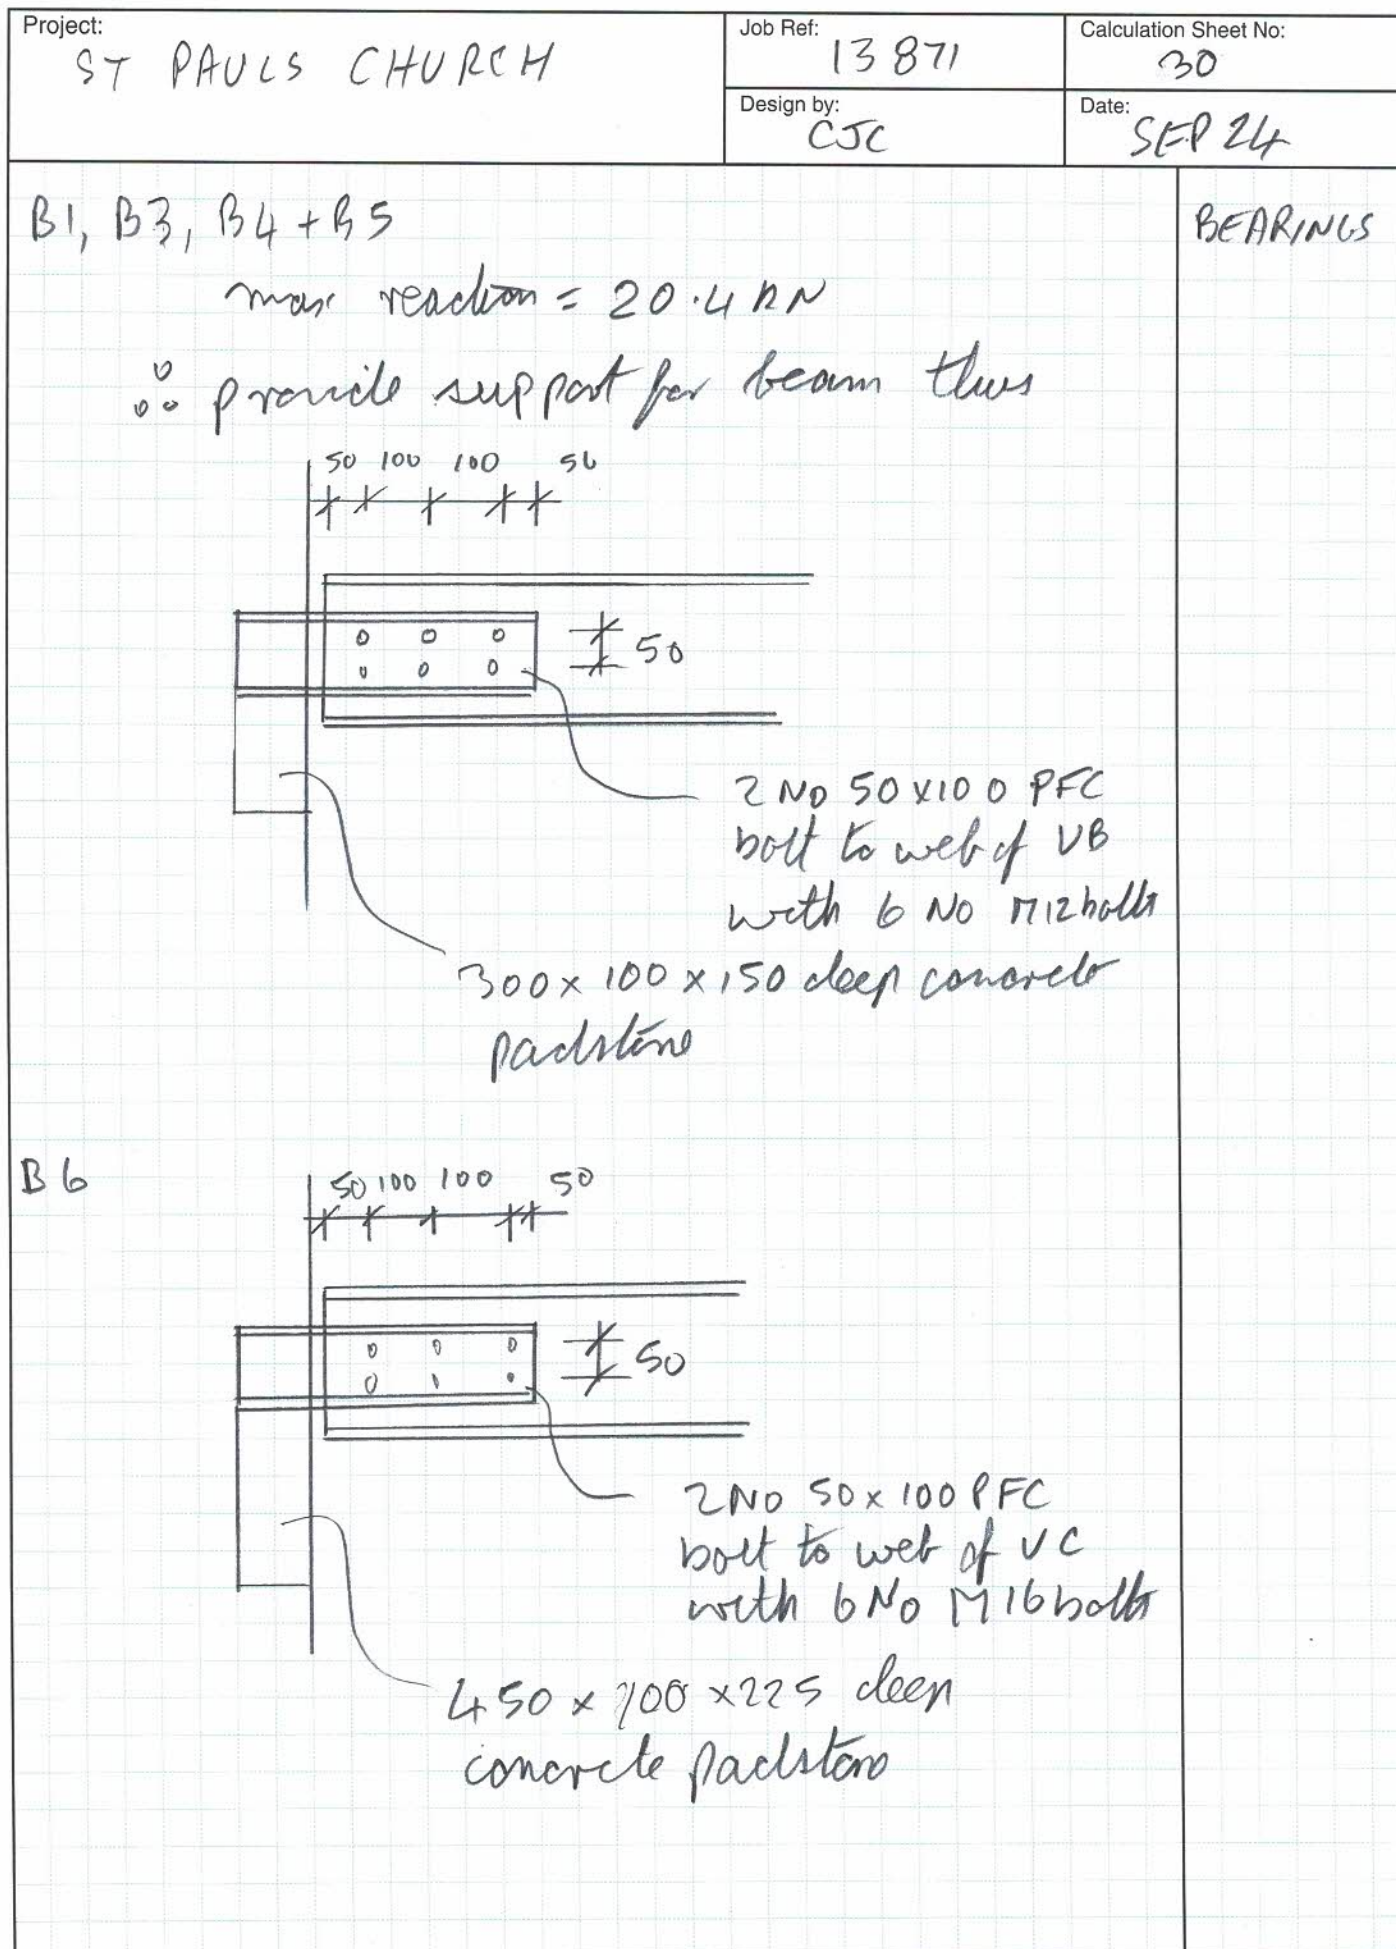 Project:
ST PAULS CHURCH
Job Ref:
13871
Calculation Sheet No:
30
Design by:
CJC
Date:
SEP 24
B1, B3, B4 + B5
BEARINGS
max reaction = 20.4 kN
∴ provide support for beam thus
50 100 100 50
50
2 NO 50 x 100 PFC
bolt to web of UB
with 6 NO M12 bolts
300 x 100 x 150 deep concrete
padstone
B6
50 100 100 50
50
2 NO 50 x 100 PFC
bolt to web of UC
with 6 No M16 bolts
450 x 100 x 225 deep
concrete padstone